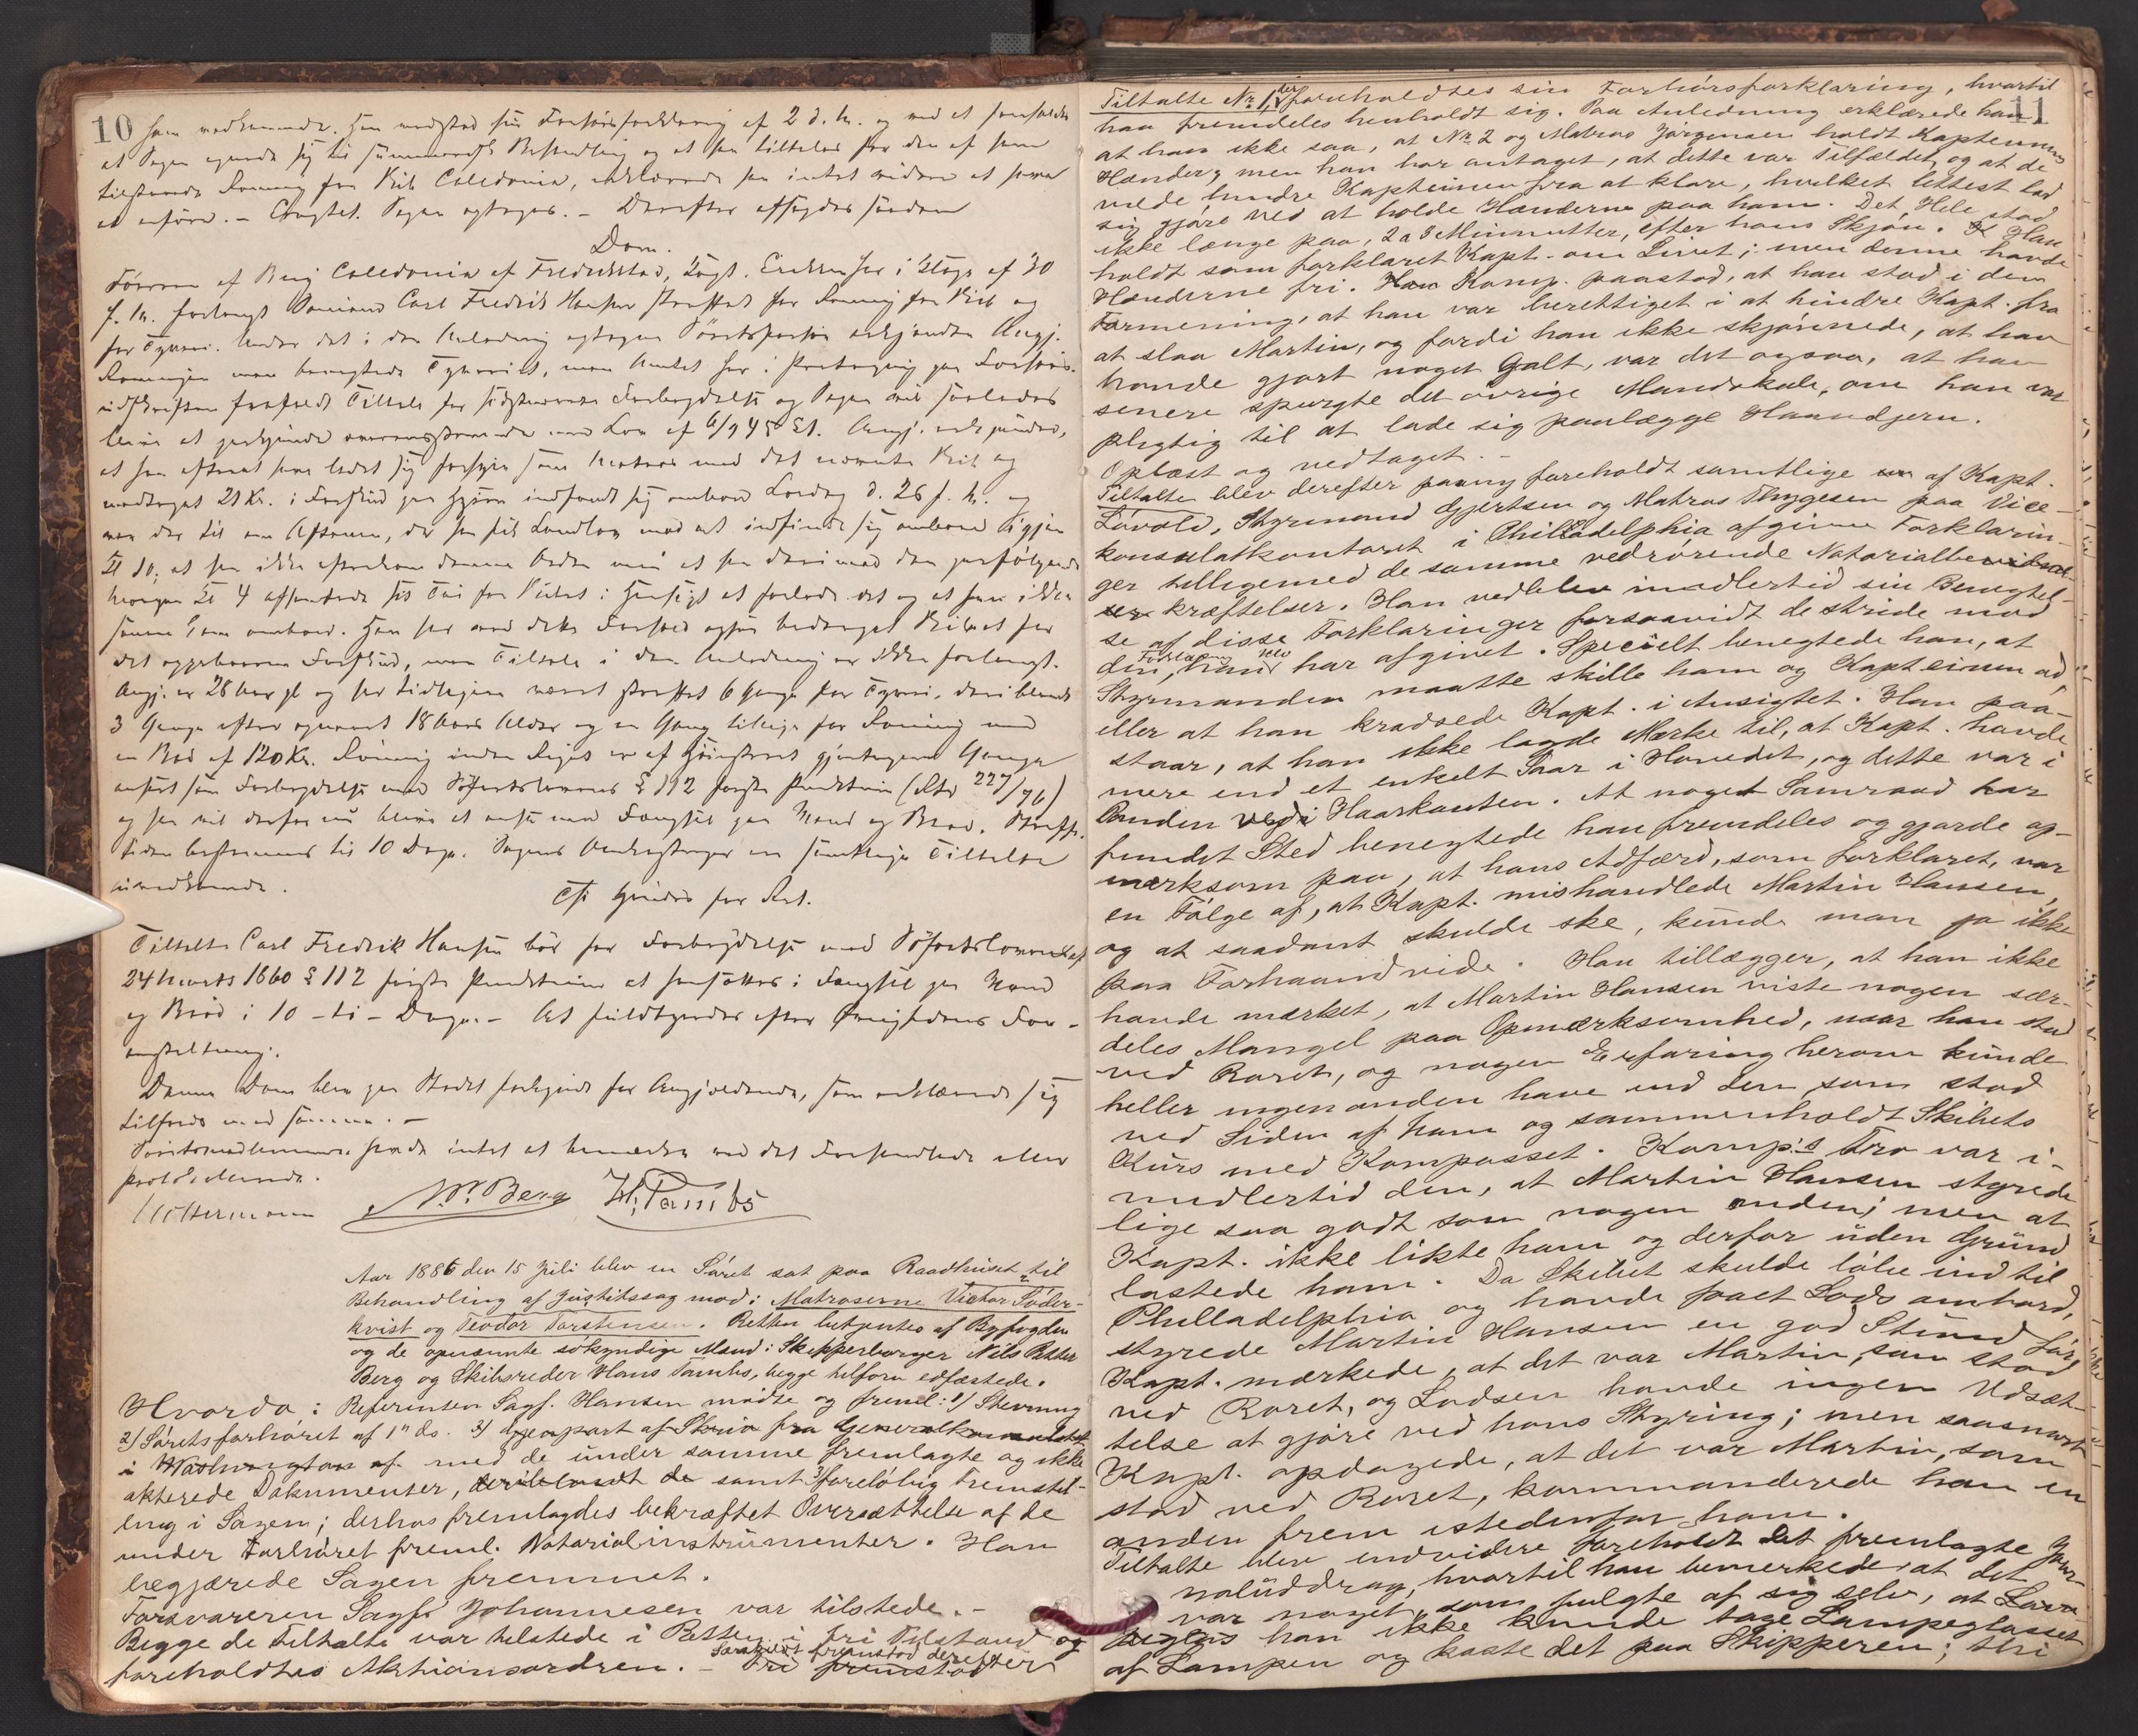 10
som vedkommende. Han vedtog sin Forhørsforklaring af 2 d. M. og ved at foreholdes
at Sagen egnede sig til summarisk Behandling og at han tiltaltes for den af ham
tilstaaede Rømning fra Skib Caledonia, erklærede han intet videre at have
at anføre. – Sagen optages. – Derefter afsagdes saadan
Dom.
Føreren af Brig Caledonia af Fredrikstad,
f. M. forlangt Sømand Carl Fredrik Hansen straffet for Rømning fra Skib og
for Tyveri. Under det i den Anledning optagne Søretsforhør erkjendte Angj.
Rømningen men benegtede Tyveriet,
at han efterat have ladet sig forhyre som Matros med det nævnte Skib og
modtaget 21 Kr. i Forskud paa Hyren indfandt sig ombord Lørdag d. 26 f. M. og
var der til om Aftenen, da han fik Landlov med at indfinde sig ombord igjen
Kl 10; at han ikke efterkom denne Ordre men at han derimod den paafølgende
Morgen Kl 4 afhentede sit Tøi fra Skibet i Hensigt at forlade det og at han ikke
siden kom ombord.
det oppebaarne Forskud, men Tiltale i den Anledning er ikke forlangt.
Angj. er 28 Aar gl og har tidligere været straffet 6 Gange for Tyveri, deriblandt
3 Gange efter opnaaet 18 Aars Alder og en Gang tillige for Rømning med
en Bod af 120 Kr. Rømning inden Riget er af Høiesteret gjentagne Gange
anseet som Forbrydelse mod Søfartslovens § 112 første Punktum (Rtd 227/76)
og han vil derfor nu blive at anse med Fængsel paa Vand og Brød. Straffe-
tiden bestemmes til 10 Dage. Sagens Omkostninger
Thi kjendes for Ret.
Tiltalte Carl Fredrik Hansen bør for Forbrydelse mod Søfartsloven af
24 Marts 1860 § 112 første Punktum at hensættes i Fængsel paa Vand
og Brød i 10 – ti – Dage. – At fuldbyrdes efter Øvrighedens For-
anstaltning.
Denne Dom blev paa Stedet forkyndt for Angjældende, som erklærede sig
tilfreds med samme. –
Søretsmedlemmerne havde intet at bemærke ved det Forhandlede eller
protokollerede.
N. P. Berg H. Tambs
Aar 1886 den 15 Juli blev en Søret sat paa Raadhuset til
Behandling af Justitssag mod: Matroserne Victor Söder-
kvist og Teodor Torstensen. Retten betjentes af Byfogden
og de opnævnte søkyndige Mænd: Skipperborger Nils Petter
Berg og Skibsreder Hans Tambs, begge tilforn edfæstede.
Hvorda: Referenten Sagf. Hansen mødte og freml: 1) Stevning
2) Søretsforhøret af 1ste ds. 3) Gjenpart af Skriv. fra Generalkonsulatet
i Washington af med de under samme fremlagte og ikke
akterede Dokumenter, deriblandt de samt 3) foreløbig Fremstil-
ling i Sagen; derhos fremlagdes bekræftet Oversættelse af de
under Forhøret freml. Notarialinstrumenter. Han
begjærede Sagen fremmet.
Forsvareren Sagf. Johannesen var tilstede. –
Begge de Tiltalte var tilstede i Retten i fri Tilstand og
foreholdtes Aktionsordren. – Særskilt fremstod derefter Fri fremstod
11
Tiltalte No. 1, der foreholdtes sin Forhørsforklaring, hvortil
han fremdeles henholdt sig. Paa Anledning erklærede han
at han ikke saa, at No. 2 og Matros Jørgensen holdt Kapteinens
Hænder, men han har antaget, at dette var Tilfældet og at de
vilde hindre Kapteinen fra at klare, hvilket lettest lod
sig gjøre ved at holde Hænderne paa ham. Det Hele stod
ikke længe paa, 2 a 3 Minnutter, efter hans Skjøn. K Han
holdt som forklaret Kapt. om Livet; men denne havde
Hænderne fri. Han Komp. paastod, at han stod i den
Formening, at han var berettiget i at hindre Kapt. fra
at slaa Martin, og fordi han ikke skjønnede, at han
havde gjort noget Galt, var det ogsaa, at han
senere spurgte det øvrige Mandskab, om han var
pligtig til at lade sig paalægge Haandjern.
Oplæst og vedtaget. –
Tiltalte blev derefter paany foreholdt samtlige af Kapt.
Løvold, Styrmand Gjertsen og Matros Thygesen paa Vice-
konsulatkontoret i Philladelphia afgivne Forklarin-
ger tillegemed de samme vedrørende Notarialbevidnel-
ser kræftelser. Han vedblev imidlertid sin Benegtel-
se af disse Forklaringer forsaavidt de stride mod
den, Forklaring han selv har afgivet. Specielt benegtede han, at
Styrmanden maatte skille ham og Kapteinen ad,
eller at han kradsede Kapt. i Ansigtet. Han paa-
staar, at han ikke lagde Mærke til, at Kapt. havde
mere end et enkelt Saar i Hovedet, og dette var i
Panden ved i Haarkanten. At noget Samraad har
fundet Sted benegtede han fremdeles og gjorde op-
mærksom paa, at hans Adfærd, som forklaret, var
en Følge af, at Kapt. mishandlede Martin Hansen,
og at saadant skulde ske, kunde man jo ikke
paa Forhaand vide. Han tillægger, at han ikke
havde mærket, at Martin Hansen viste nogen sær-
deles Mangel paa Opmærksomhed, naar han stod
ved Roret, og nogen Erfaring herom kunde
heller ingen anden have end den, som stod
ved Siden af ham og sammenholdt Skibets
Kurs med Kompasset. Komp.s Tro var i-
midlertid den, at Martin Hansen styrede
lige saa godt som nogen anden; men at
Kapt. ikke likte ham og derfor uden Grund
lastede ham. Da Skibet skulde løbe ind til
Philladelphia og havde faaet Lods ombord,
styrede Martin Hansen en god Stund før
Kapt. mærkede, at det var Martin, som stod
ved Roret, og Lodsen havde ingen Udsæt-
telse at gjøre ved hans Styring; men saasnart
Kapt. opdagede, at det var Martin, som
stod ved Roret, kommanderede han en
anden frem istedenfor ham.
Tiltalte blev endvidere foreholdt det fremlagte Jour-
naluddrag, hvortil han bemerkede, at det
var noget, som fulgte af sig selv, at
han ikke kunde tage Lampeglasset
af Lampen og kaste det paa Skipperen; thi